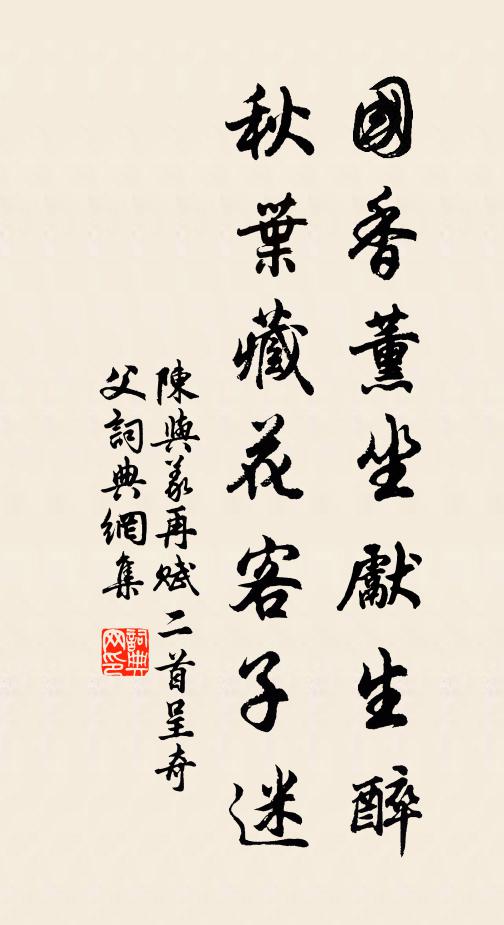 國香薰坐獻生醉
秋葉藏花客子迷
陳與義再賦二首呈奇
父詞典網集
詞典網印